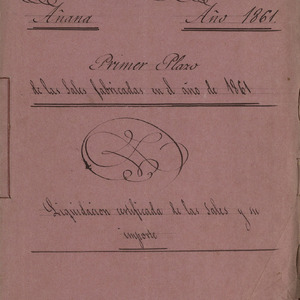 Añana Año 1861.
Primer Plazo
de las Sales fabricadas en el año de 1861
Liquidacion certificada de las Sales y su
importe